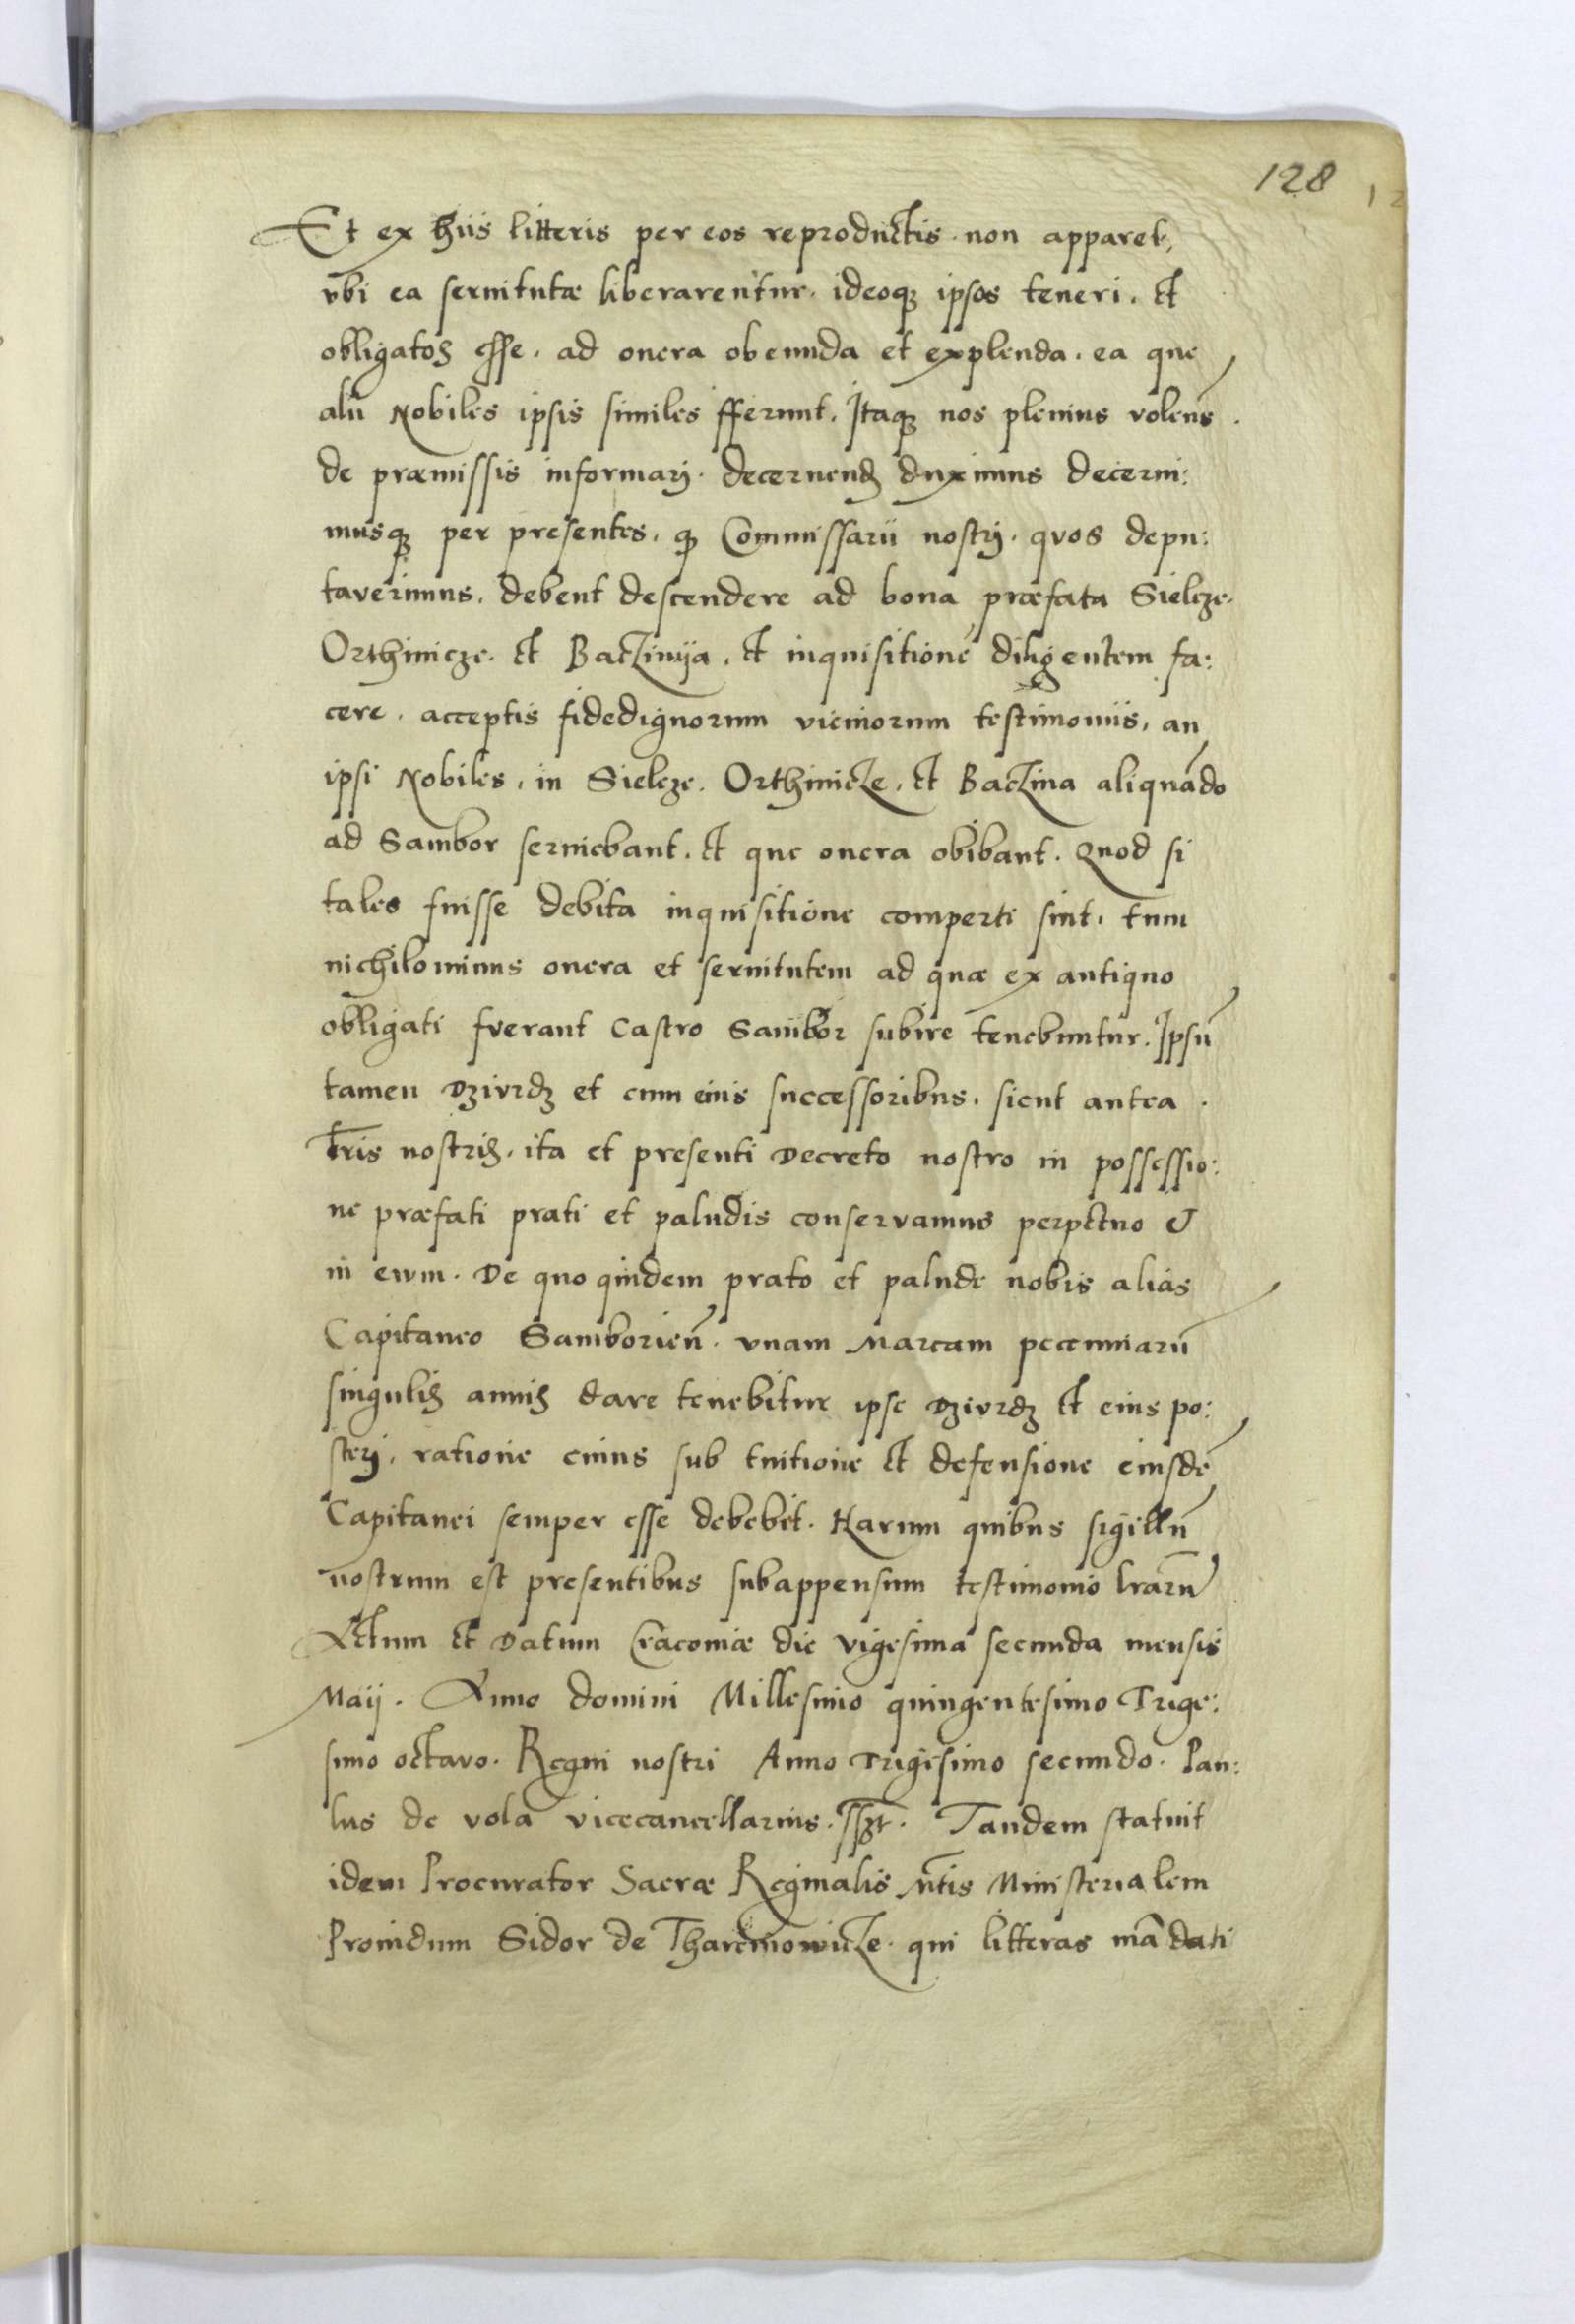 128
Et ex hiis litteris per eos reproductis. non apparet,
vbi ea seruitutæ liberarentur. ideoqꝫ ipsos teneri. et
obligatos esse. ad onera obeunda et explenda. ea que
alii Nobiles ipsis similes fferunt. Itaqꝫ nos plenius volens̃.
de præmissis informarj. decernend̃ duximus decerni:
musqꝫ per presentes. qꝫ Commissarii nostrj. quos depu:
taverimus. debent descendere ad bona præfata Sielcze.
Orthinicze. et Baczinija. et inquisitionē diligentem fa:
cere. acceptis fidedignorum vicinorum testimoniis. an
ipsi Nobiles. in Sielcze. Orthinicze. et Baczina aliquādo
ad Sambor seruiebant. et que onera obibant. Quod si
tales fuisse debita inquisitione comperti sint. tum
nichilominus onera et seruitutem ad quæ ex antiquo
obligati fverant Castro Sambor subire tenebuntur. Ipsū
tamen Dziurdz et cum eius successoribus. sicut antea.
l̃ris nostris. ita et presenti Decreto nostro in possessio:
ne præfati prati et paludis conservamus perpetuo &
in ewm. De quo quidem prato et palude nobis alias
Capitaneo Samborien̄. vnam Marcam pecunniarū
singulis annis dare tenebitur ipse Dziurdz et eius po:
sterj. ratione cuius sub tuitione et defensione eiusdē
Capitanei semper esse debebit. Harum quibus sigillū
nostrum est presentibus subappensum testimonio l̃rarū
Actum et Datum Cracoviæ die vigesima secunda mensis
Maij. Anno domini Millesimo quingentesimo Trige:
simo octavo. Regni nostri Anno Trigesimo secundo. Pau:
lus de vola vicecancellarius. sszt. Tandem statuit
idem Procurator Sacræ Reginalis Mt̃is Ministerialem
Prouidum Sidor de Tharcmowicze. qui litteras mādati